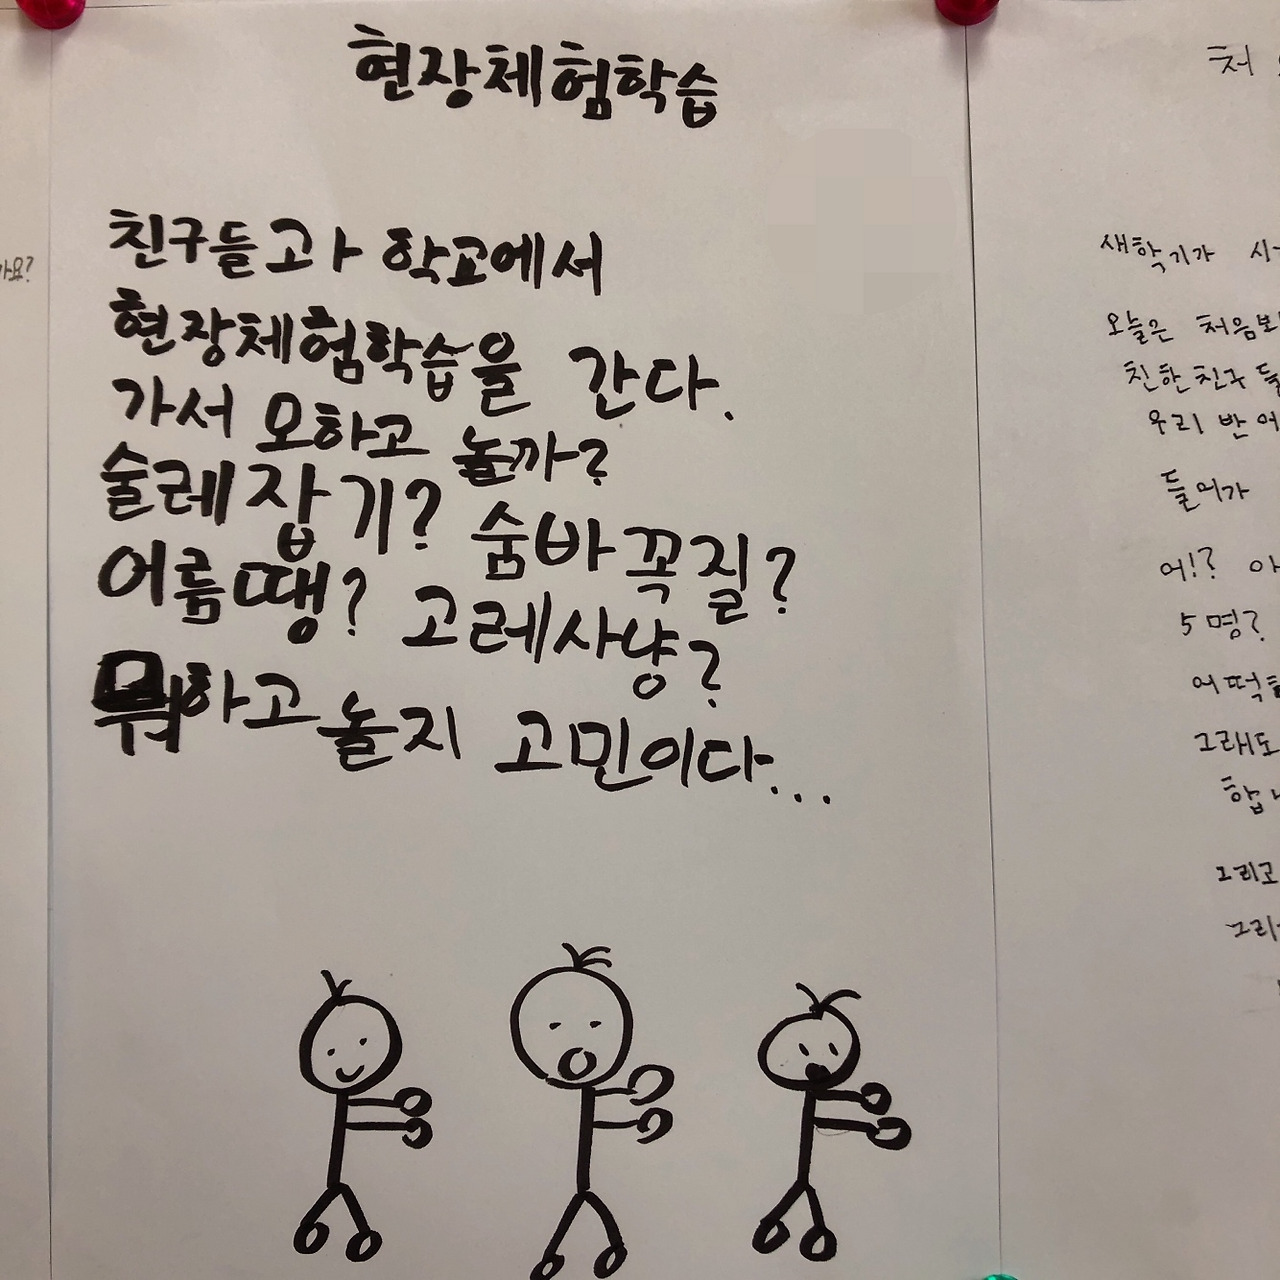 현장체험학습
친구들과 학교에서
현장체험학습을 간다.
가서 모하고 놀까?
술레잡기? 숨바꼭질?
어름땡? 고레사냥?
뭐하고 놀지 고민이다...
가요?
처
새학기가
오늘은 처음보
친한친구들
우리 반 에
들어가
어!? 아
5명?
어떡
그래도
합
그리고
그리